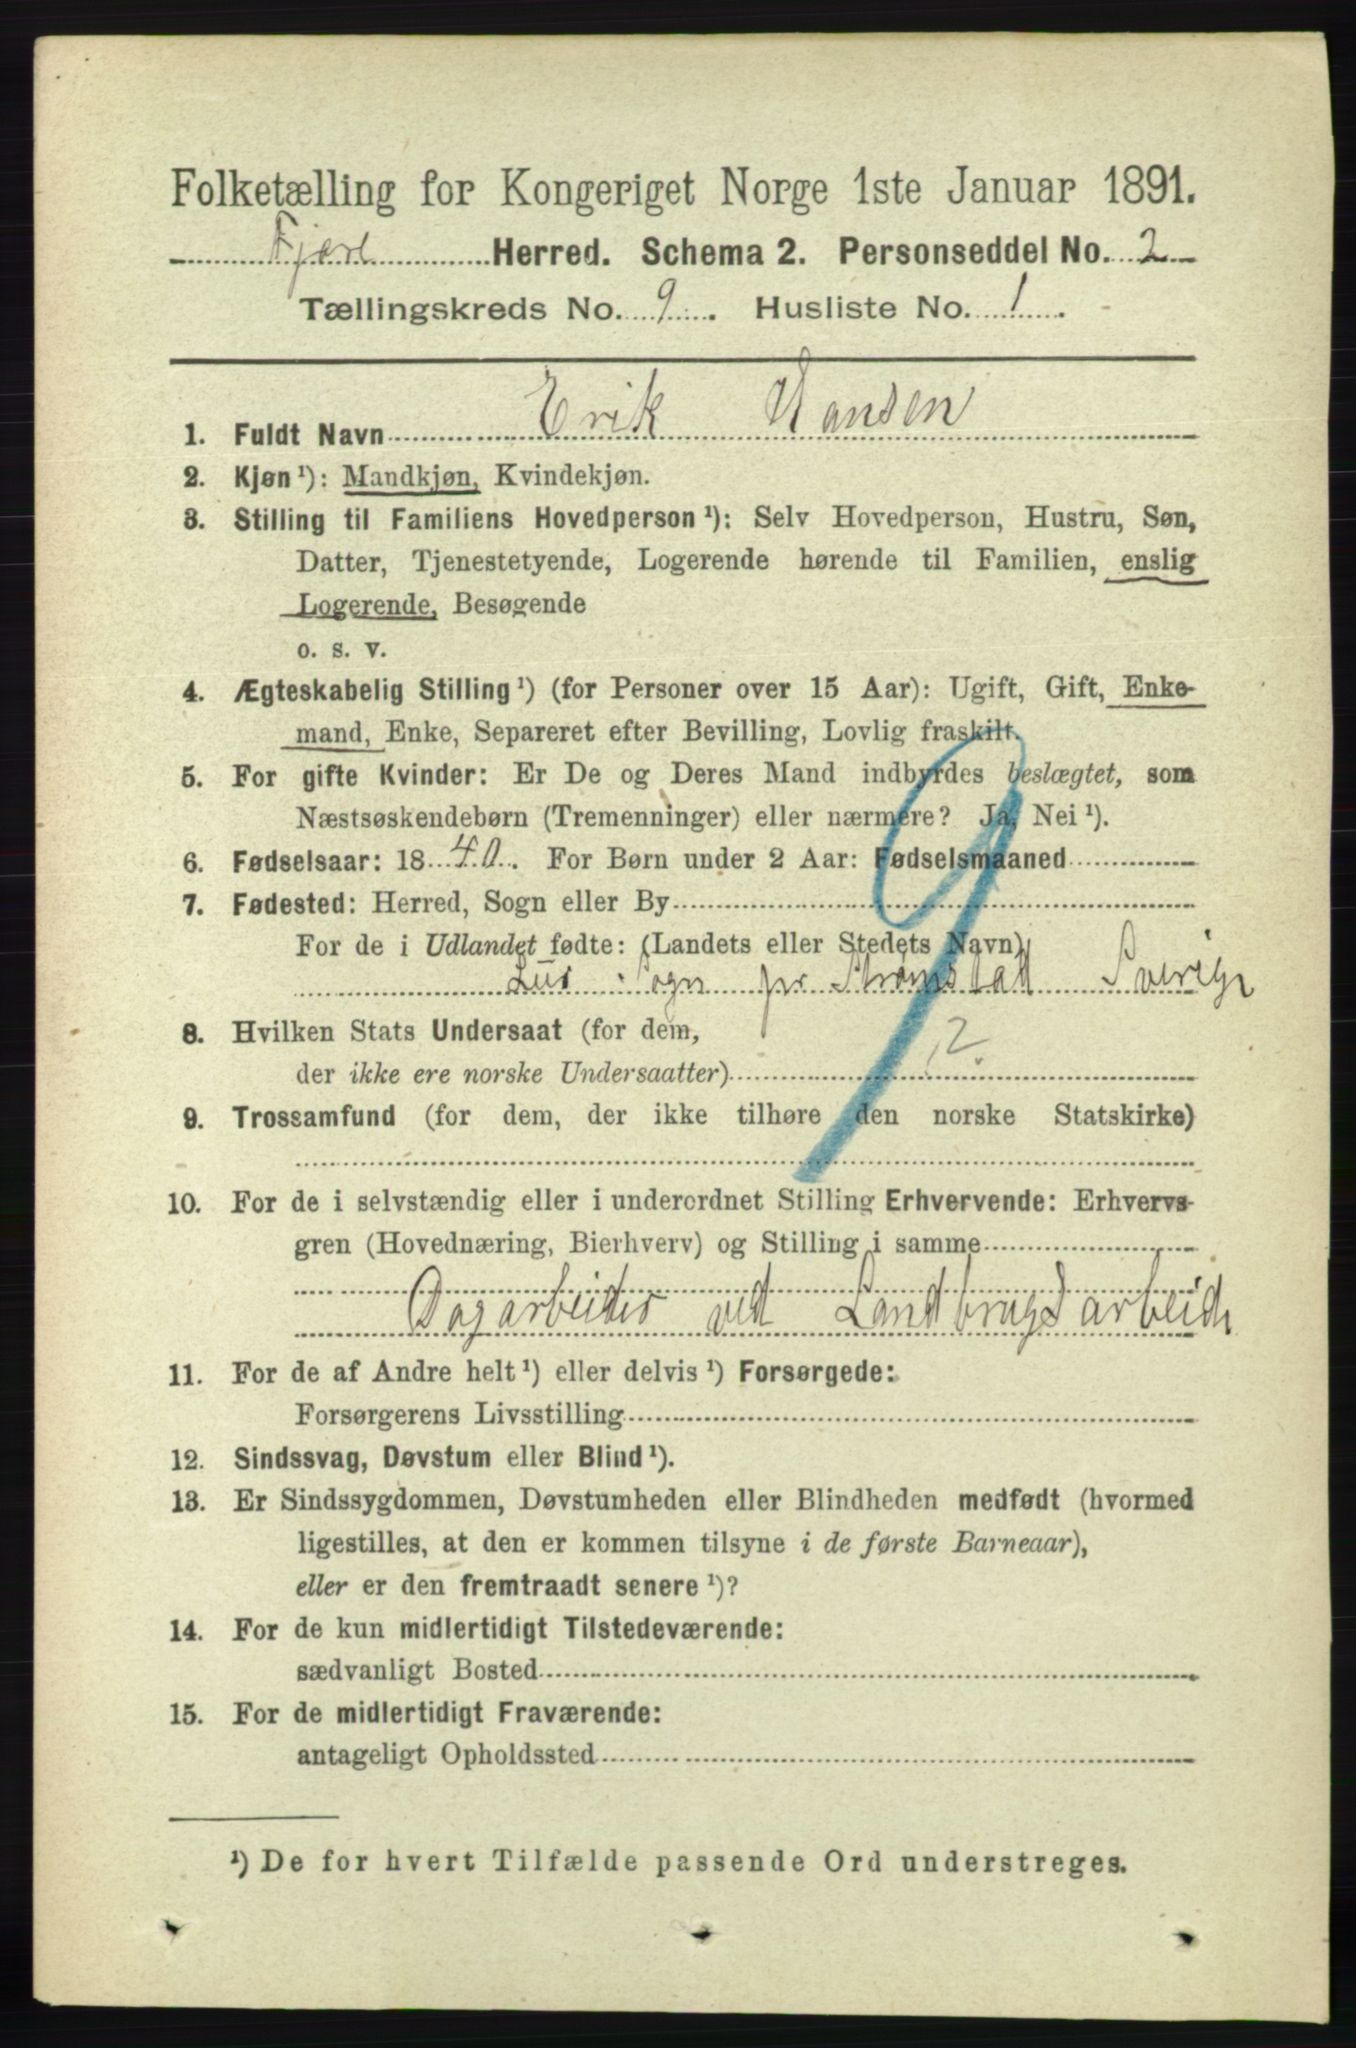 Folketælling for Kongeriget Norge 1ste Januar 1891.
Fjære Herred. Schema 2. Personseddel No. 2
Tællingskreds No. 9. Husliste No. 1.
1. Fuldt Navn Erik Hansen
2. Kjøn ¹): Mandkjøn, Kvindekjøn.
3. Stilling til Familiens Hovedperson ¹): Selv Hovedperson, Hustru, Søn,
Datter, Tjenestetyende, Logerende hørende til Familien, enslig
Logerende, Besøgende
o. s. v.
4. Ægteskabelig Stilling ¹) (for Personer over 15 Aar): Ugift, Gift, Enke-
mand, Enke, Separeret efter Bevilling, Lovlig fraskilt.
5. For gifte Kvinder: Er De og Deres Mand indbyrdes beslægtet, som
Næstsøskendebørn (Tremenninger) eller nærmere? Ja, Nei ¹).
6. Fødselsaar: 1840. For Børn under 2 Aar: Fødselsmaaned
7. Fødested: Herred, Sogn eller By
For de i Udlandet fødte: (Landets eller Stedets Navn)
Lur Sogn pr Strømstad Sverige
8. Hvilken Stats Undersaat (for dem,
der ikke ere norske Undersaatter) 2.
9. Trossamfund (for dem, der ikke tilhøre den norske Statskirke)
9
10. For de i selvstændig eller i underordnet Stilling Erhvervende: Erhvervs-
gren (Hovednæring, Bierhverv) og Stilling i samme
Dagarbeider ved Landbrugsarbeide
11. For de af Andre helt ¹) eller delvis ¹) Forsørgede:
Forsørgerens Livsstilling
12. Sindssvag, Døvstum eller Blind ¹).
13. Er Sindssygdommen, Døvstumheden eller Blindheden medfødt (hvormed
ligestilles, at den er kommen tilsyne i de første Barneaar),
eller er den fremtraadt senere ¹)?
14. For de kun midlertidigt Tilstedeværende:
sædvanligt Bosted
15. For de midlertidigt Fraværende:
antageligt Opholdssted
¹) De for hvert Tilfælde passende Ord understreges.